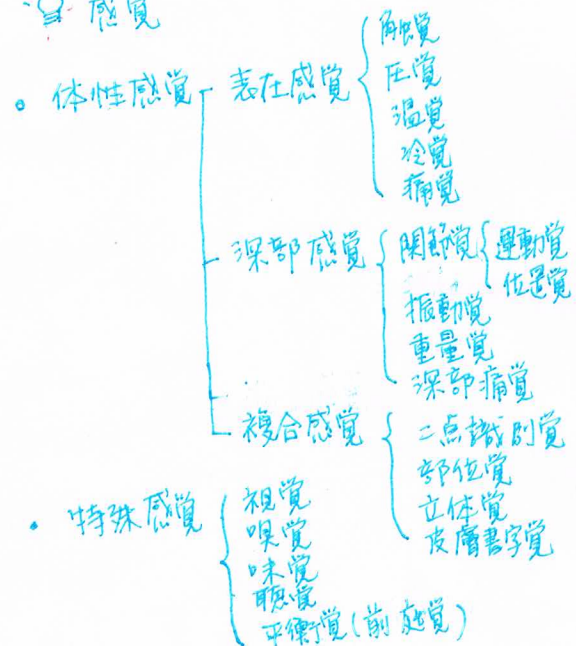 感覚
• 体性感覚 表在感覚 触覚
圧覚
温覚
冷覚
痛覚
深部感覚 関節覚 運動覚
位置覚
振動覚
重量覚
深部痛覚
複合感覚 二点識別覚
部位覚
立体覚
皮膚書字覚
• 特殊感覚 視覚
嗅覚
味覚
聴覚
平衡覚(前庭覚)